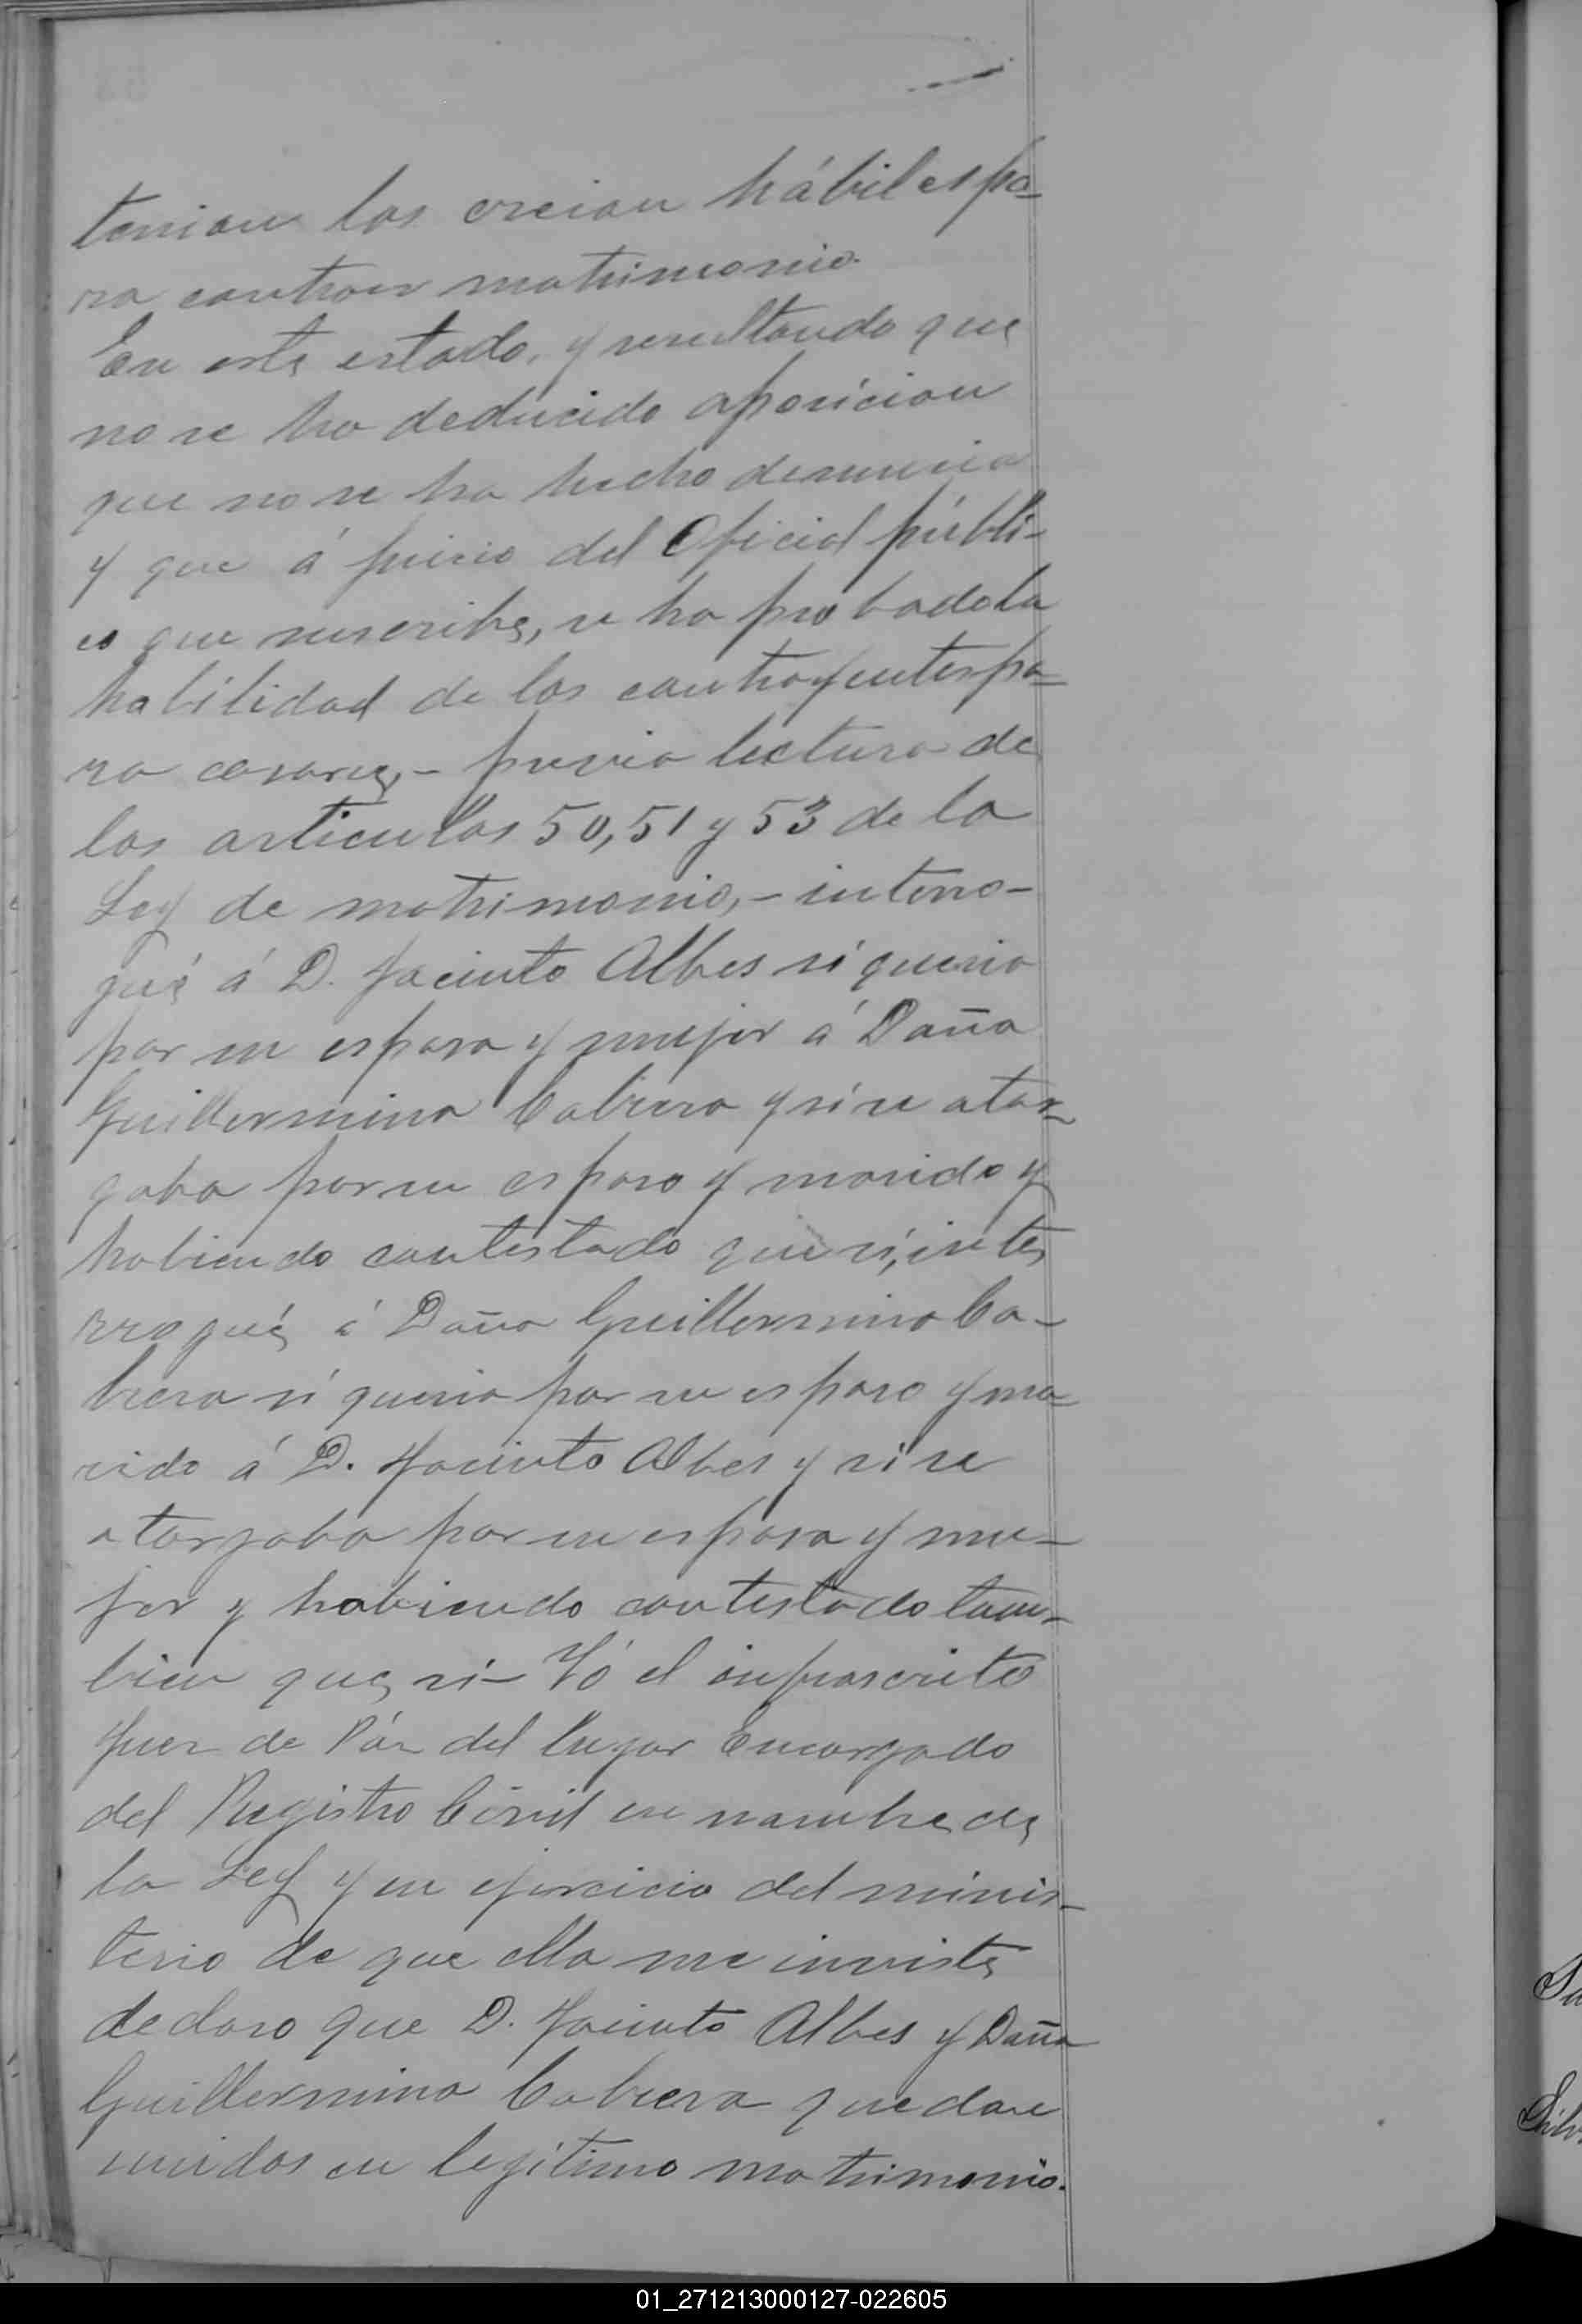 tenian los creian hábiles pa-
ra contraer matrimonio.
En este estado, y resultando que
no se ha deducido oposicion
que no se ha hecho denuncia
y que á juicio del Oficial públi-
co que suscribe, se ha probado la
habilidad de los contrayentes pa-
ra casarse, - previa lectura de
los articulos 50, 51 y 53 de la
Ley de matrimonio, - interro-
gué á D. Jacinto Albes si queria
por su esposa y mujer á Doña
Guillermina Cabrera y si se otor-
gaba por su esposo y marido y
habiendo contestado que si, inte-
rrogué á Doña Guillermina Ca-
brera si queria por su esposo y ma-
rido á D. Jacinto Albes y si se
otorgaba por su esposa y mu-
jer y habiendo contestado tam-
bien que si - Yó el infrascrito
Juez de Páz del lugar Encargado
del Registro Civil en nombre de
la Ley y en ejercicio del minis-
terio de que ella me inviste
declaro que D. Jacinto Albes y Doña
Guillermina Cabrera quedan
unidos en legítimo matrimonio.
01_271213000127-022605